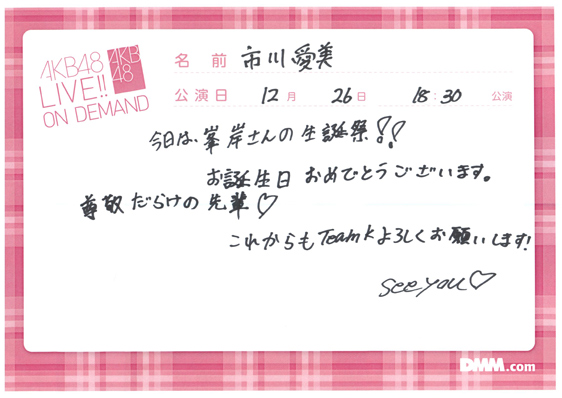 AKB48
LIVE!!
ON DEMAND
AKB
48
名前 市川愛美
公演日 12月 26日 18:30 公演
今日は、峯岸さんの生誕祭!!
お誕生日おめでとうございます。
尊敬だらけの先輩♡
これからもTeamKよろしくお願いします!
see you♡
DMM.com